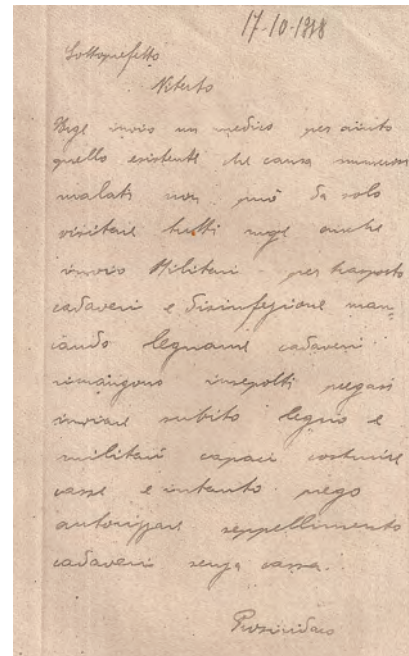 17-10-1918
Sottoprefetto
Viterbo
Urge invio un medico per aiuto
quello esistente che causa numerosi
malati non può da solo
visitare tutti urge anche
invio Militari per trasporto
cadaveri e disinfezione man-
cando legname cadaveri
rimangono insepolti pregasi
inviare subito legno e
militari capaci costruire
casse e intanto prego
autorizzare seppellimento
cadaveri senza cassa.
Prosindaco